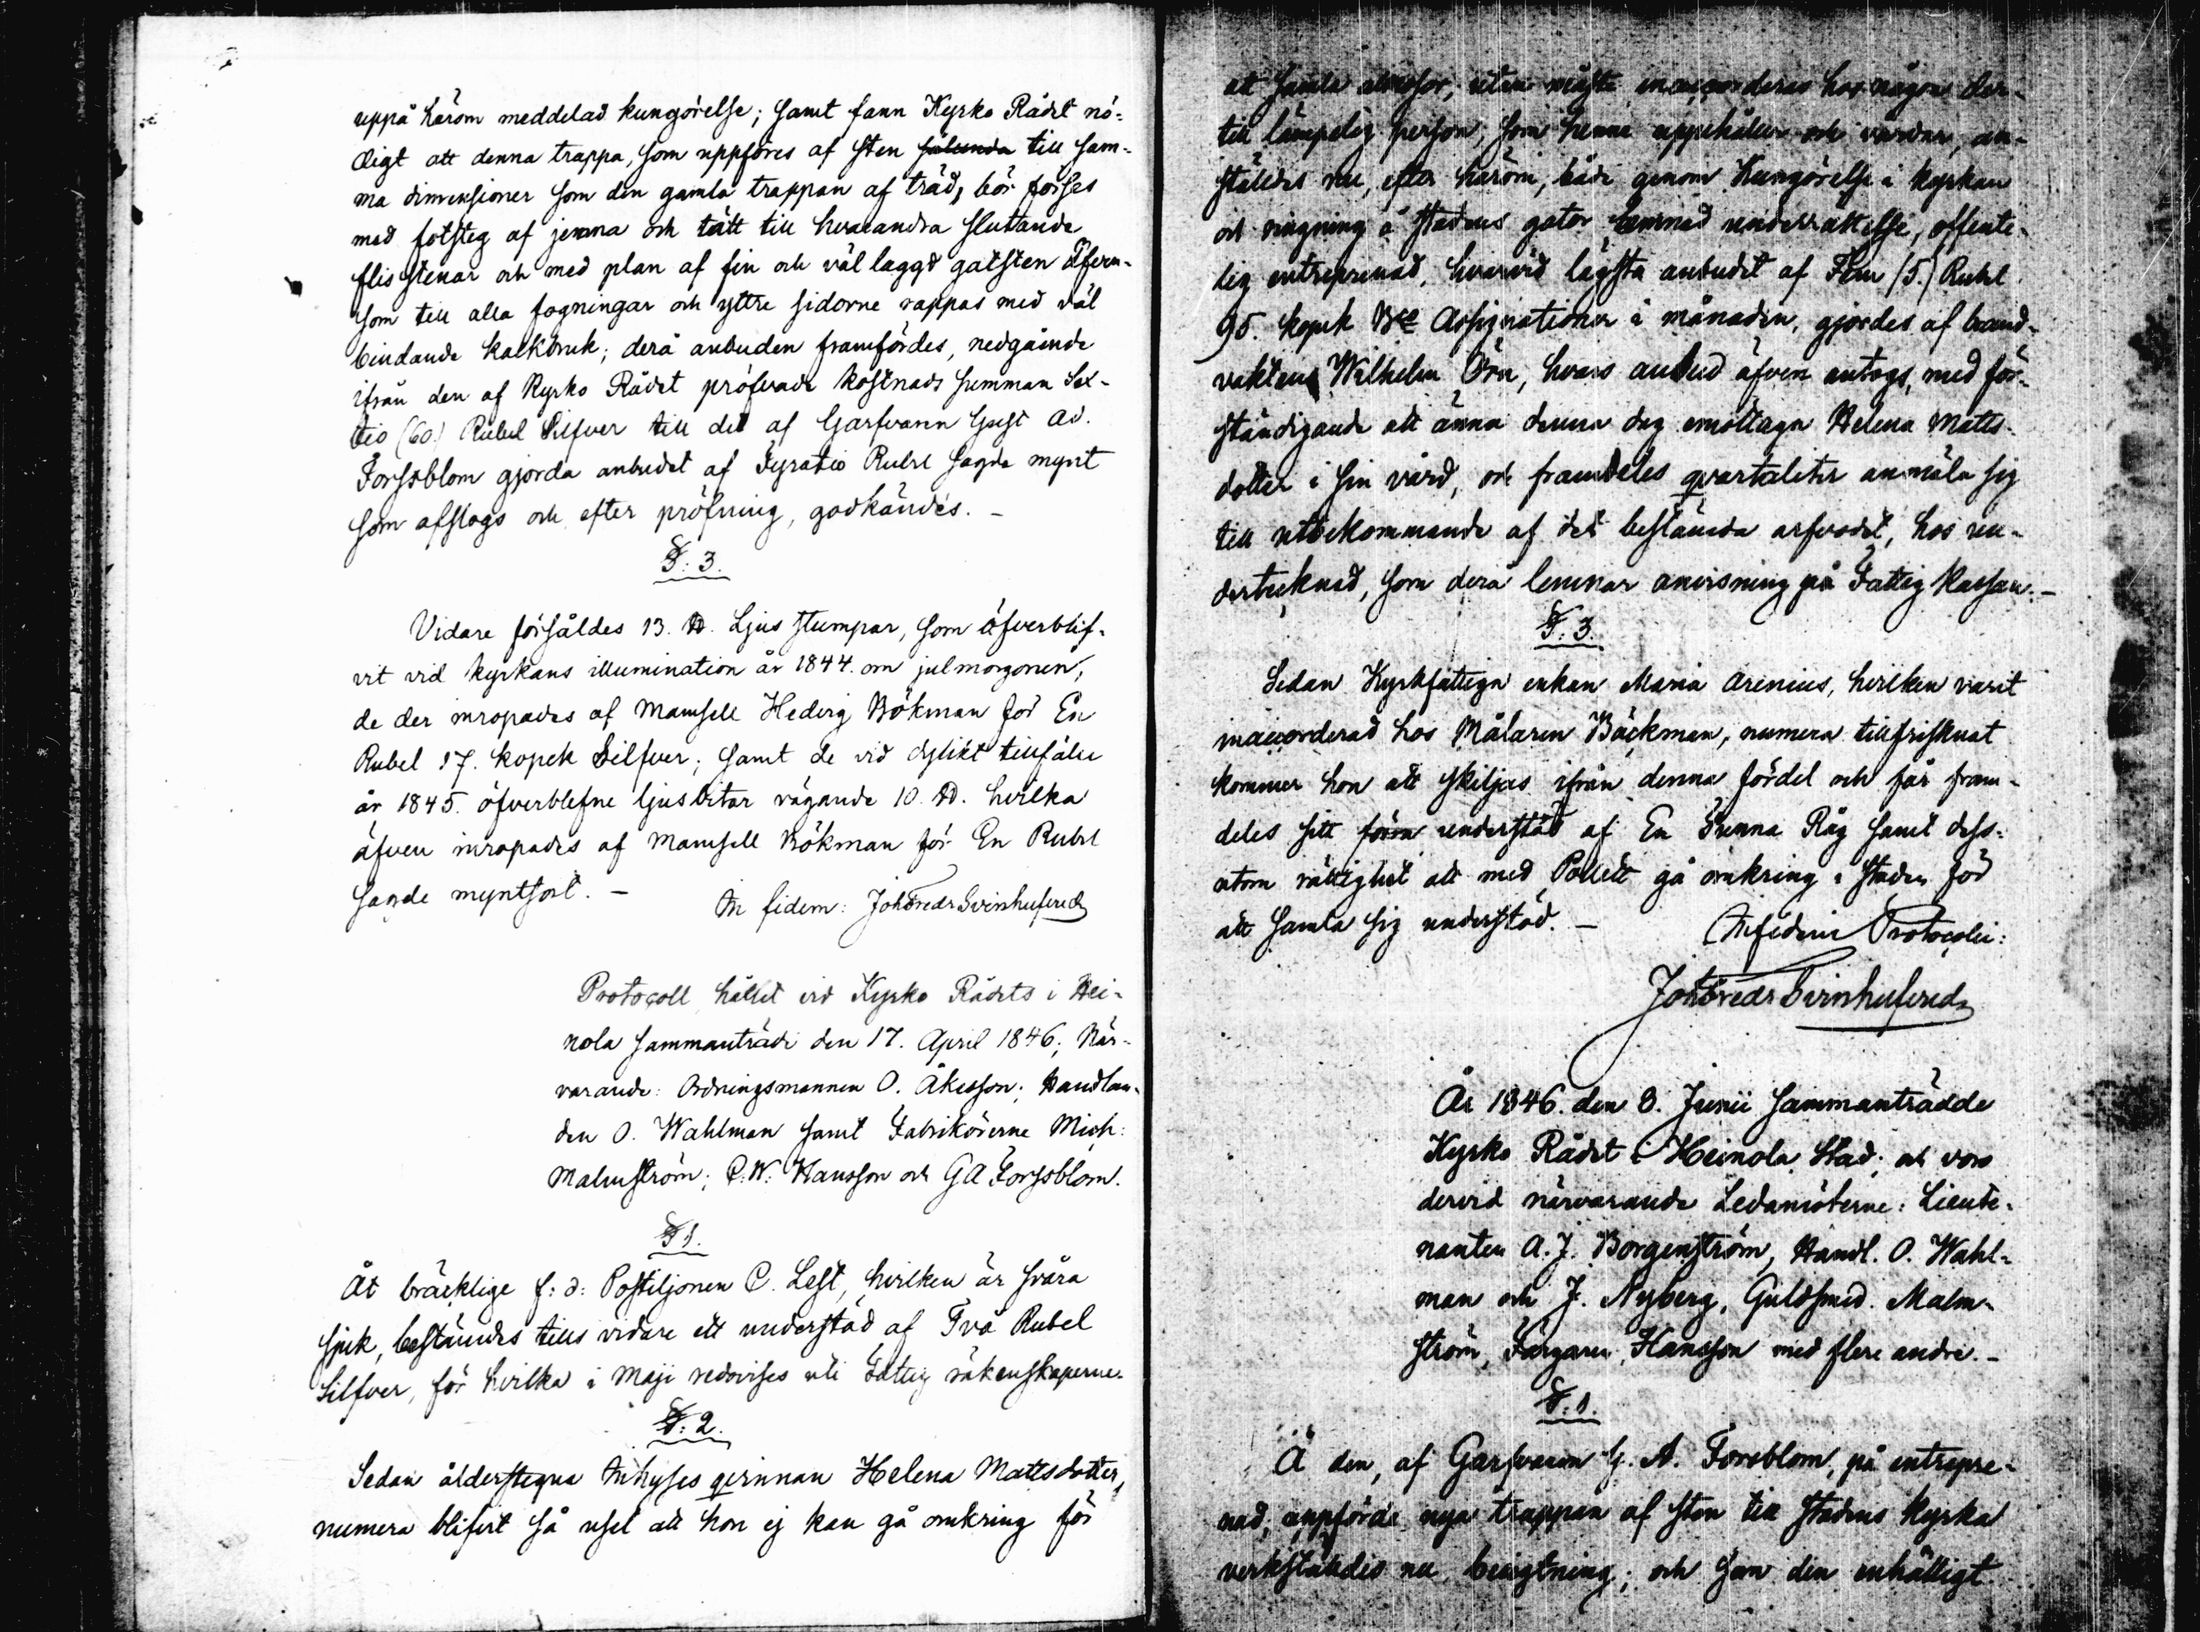 uppå härom meddelad kungörelse; samt fann Kyrko Rådet nö-
digt att denna trappa, som uppföres af sten sålunda till sam-
ma dimensioner som den gamla trappan af träd, bör förses
med fotsteg af jemna och tätt till hvarandra slutande
flisstenar och med plan af fin och väl laggd gatsten äfven-
som till alla fogningar och yttre sidorne rappas med väl
bindande kalkbruk; derå anbuden framfördes, nedgående
ifrån den af Kyrko Rådet pröfvade kostnads summan Sex-
tio (60.) Rubel Silfver till det af Garfvarn Gust Ad.
Forssblom gjorda anbudet af Fyratio Rubel sagde mynt
som afslogs och efter pröfning, godkändes. -
§: 3.
Vidare försåldes 13. ℔. Ljus stumpar, som öfverblif-
vit vid kyrkans illumination år 1844. om julmorgonen,
de der inropades af Mamsell Hedvig Bökman för En
Rubel 17. kopek Silfver; samt de vid dylikt tillfälle
år 1845. öfverblefne ljusbitar vägande 10. ℔. hvilka
äfven inropades af Mamsell Bökman för En Rubel
sagde myntsort. -
In fidem: Joh Fredr Svinhufvud
Protocoll hållet vid Kyrko Rådets i Hei-
nola sammanträde den 17. April 1846; När-
varande: Ordningsmannen O. Åkesson; Handlan-
den O. Wahlman samt Fabrikörerne Mich:
Malmström; C. W. Hansson och G A Forssblom.
§ 1.
Åt bräcklige f: d: Postiljonen C. Lest, hvilken är svåra
sjuk, bestämdes tills vidare ett understöd af Två Rubel
Silfver, för hvilka i Maji redovises uti Fattig räkenskaperne.
§: 2.
Sedan ålderstegna Inhyses qvinnan Helena Mattsdotter,
numera blifvit så usel att hon ej kan gå omkring för
att samla almosor, utan måste inaccorderas hos någon der-
till lämpelig person, som henne uppehåller och vårdar, an-
ställdes nu, efter härom, både genom Kungörelse i kyrkan
och ringning å Stadens gator lemnad underrättelse, offent-
lig entreprenad, hvarvid lägsta anbudet af Fem (5.) Rubel
95. kopek Bco Assignationer i månaden, gjordes af brand-
vakten Wilhelm Örn, hvars anbud äfven antogs, med för-
ständigande att ännu denna dag emottaga Helena Matts-
dotter i sin vård, och framdeles qvartaliter anmäla sig
till utbekommande af det bestämda arfvodet, hos un-
dertecknad, som derå lemnar anvisning på Fattig Kassan. -
§: 3.
Sedan Kyrkfattiga enkan Maria Arenius, hvilken varit
inaccorderad hos Målaren Bäckman, numera tillfrisknat
kommer hon att skiljas ifrån denna fördel och får fram-
deles sitt förra understöd af En Tunna Råg samt dess-
utom rättighet att med Pollett gå omkring i Staden för
att samla sig understöd. -
In fidem Protocolli:
Joh Fredr Svinhufvud
År 1846. den 8. Junii sammanträdde
Kyrko Rådet i Heinola Stad; och voro
dervid närvarande Ledamöterne: Lieute-
nanten A. J. Borgenström, Handl. O. Wahl-
man och J. Nyberg, Guldsmed. Malm-
ström, Färgaren Hansson med flere andre. -
§: 1.
Å den, af Garfvaren G. A. Forsblom, på entrepre-
nad, uppförde nya trappan af sten till Stadens kyrka
verkställdes nu besigtning; och som den enhälligt